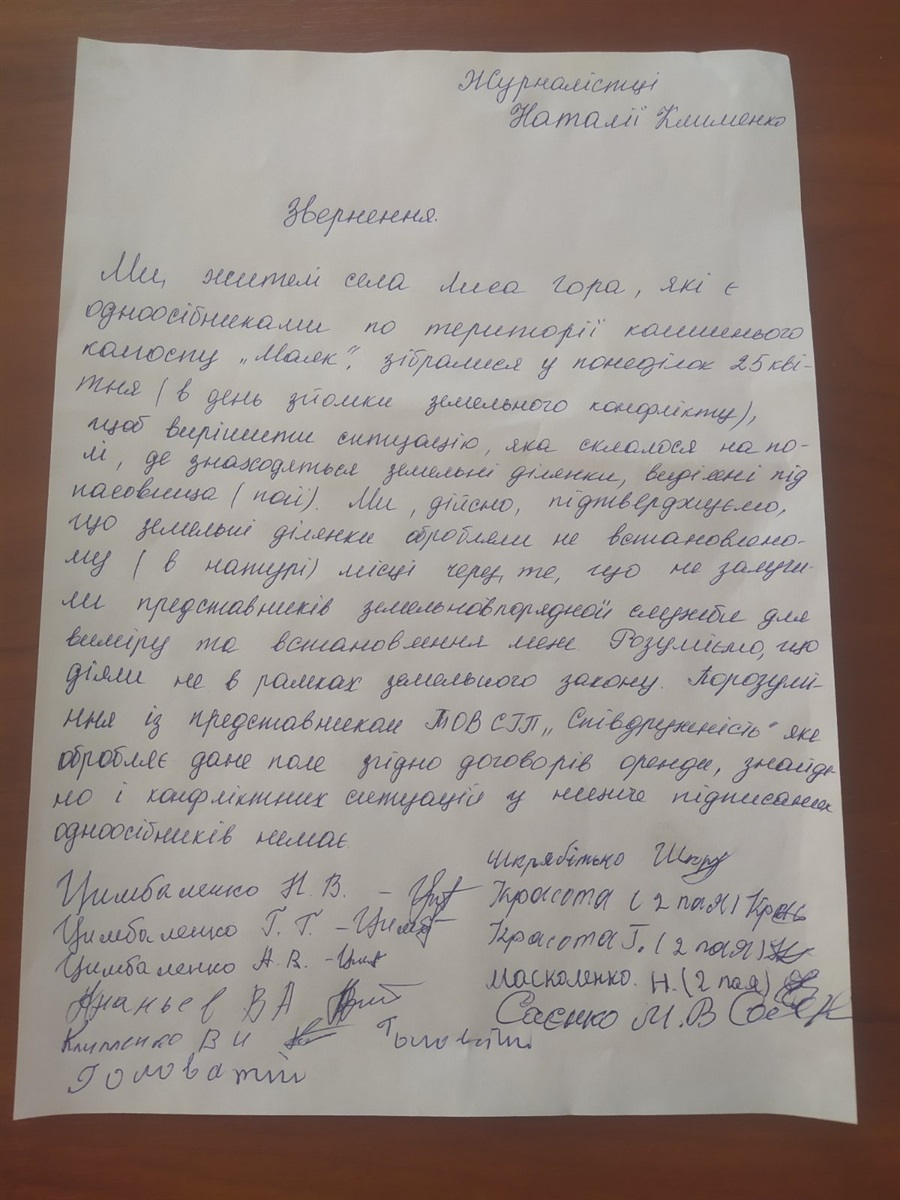 Журналістці
Наталії Клименко
Звернення.
Ми, жителі села Лиса Гора, які є
одноосібниками по території колишнього
колгоспу „Маяк", зібралися у понеділок 25 кві-
тня (в день зйомки земельного конфлікту),
щоб вирішити ситуацію, яка склалося на по-
лі, де знаходяться земельні ділянки, виділені під
пасовища (паї). Ми, дійсно, підтверджуємо,
що земельні ділянки обробляли не встановлено-
му (в натурі) місці через те, що не залучи-
ли представників земельновпорядної служби для
виміру та встановлення меж. Розуміємо, що
діяли не в рамках земельного закону. Порозумі-
ння із представником ТОВ СГП „Співдружність" яке
обробляє дане поле згідно договорів оренди, знайде-
но і конфліктних ситуацій у нижче підписаних
одноосібників немає.
Цимбаленко Н. В. –
Цимбаленко Г. Г. –
Цимбаленко А. В. –
Ананьєв В А
Клименко В И
Головатий
Шкрябітько
Красота (2 пая)
Красота Г. (2 пая)
Маскаленко. Н. (2 пая)
Саєнко М. В